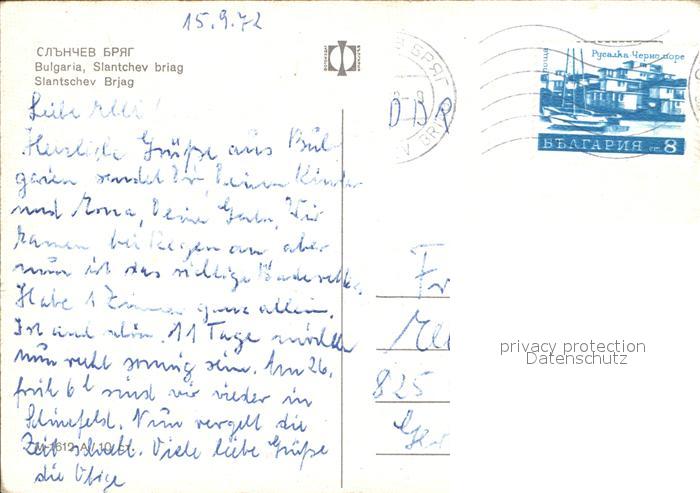 15.9.72
СЛЪНЧЕВ БРЯГ
Bulgaria, Slantchev briag
Slantschev Brjag
Liebe Elli!
Herzliche Grüße aus Bul-
garien sendet Dir, Deinen Kinder
und Mona, Deine
kamen bei Regen an aber
nun ist das richtige Badewetter.
Habe 1 Zimmer ganz allein.
Ist auch schön. 11 Tage möchten
nun recht sonnig sein. Am 26.
früh 6h sind wir wieder in
Schönefeld. Nun vergeht die
Zeit schnell. Viele liebe Grüße
die
DDR
БРЯГ
Русалка Черно море
поща
БЪЛГАРИЯ ст. 8
Fr
825
privacy protection
Datenschutz